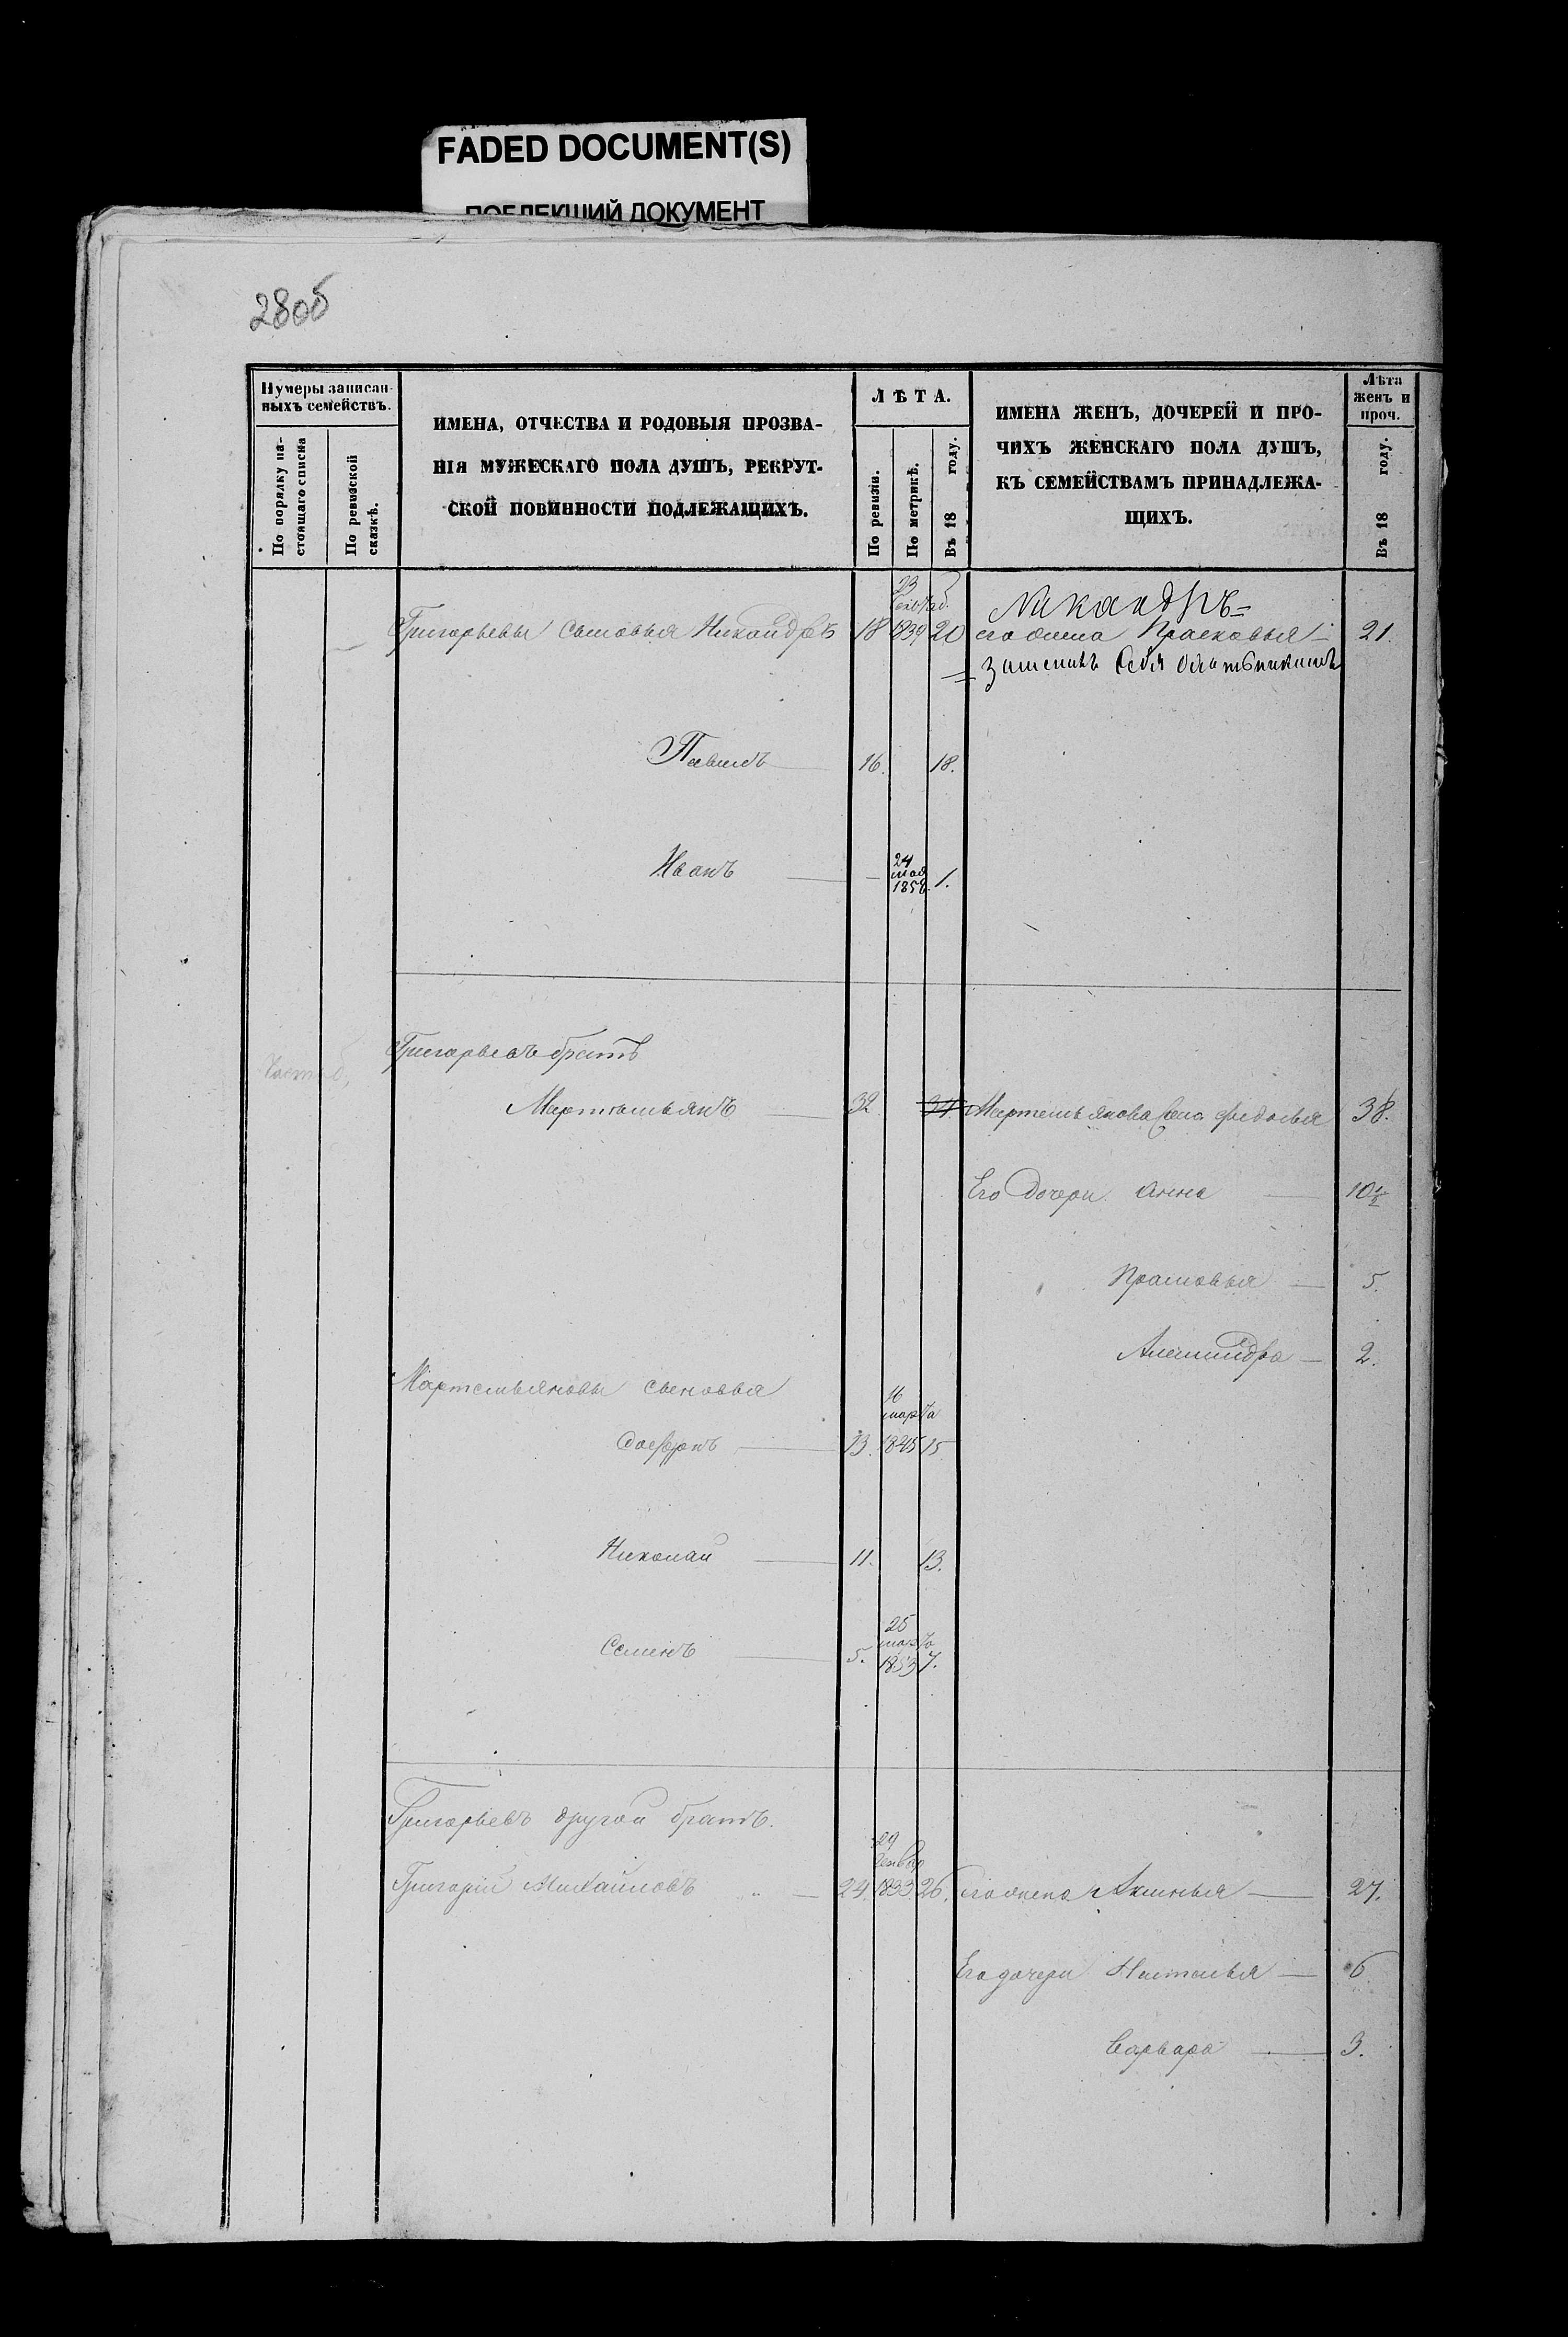 FADED DOCUMENT(S)
ПОБЛЕКШИЙ ДОКУМЕНТ
280б
Нумеры записан-
ныхъ семействъ.
По порядку на-
стоящаго списка
По ревизской
сказкѣ.
ИМЕНА, ОТЧЕСТВА И РОДОВЫЯ ПРОЗВА-
НІЯ МУЖЕСКАГО ПОЛА ДУШЪ, РЕКРУТ-
СКОЙ ПОВИННОСТИ ПОДЛЕЖАЩИХЪ.
ЛѢТА.
По ревизіи.
По метрикѣ.
Въ 18 году.
ИМЕНА ЖЕНЪ, ДОЧЕРЕЙ И ПРО-
ЧИХЪ ЖЕНСКАГО ПОЛА ДУШЪ,
КЪ СЕМЕЙСТВАМЪ ПРИНАДЛЕЖА-
ЩИХЪ.
Лѣта
женъ и
проч.
Въ 18 году.
Никандръ
23
Григорьевы сыновья Никандръ 18 1839 20 его жена Прасковья 21.
замѣнилъ себя охотникомъ
Павелъ 16. 18.
Иванъ — 24 мая 1858. 1.
Григорьевъ братъ
Мартемьянъ 32. 34. Мартемьянова жена Федосья 38.
Его дочери Анна 10½
Прасковья 5.
Александра 2.
Мартемьяновы сыновья
16 марта
13. 1845 15
Николай 11. 13.
Семенъ 5. 25 марта 1853 7.
Григорьевъ другой братъ.
29 Генвар
Григорій Михайловъ 24. 1833 26. его жена Аксинья 27.
Его дочери Наталья 6
Варвара 3.